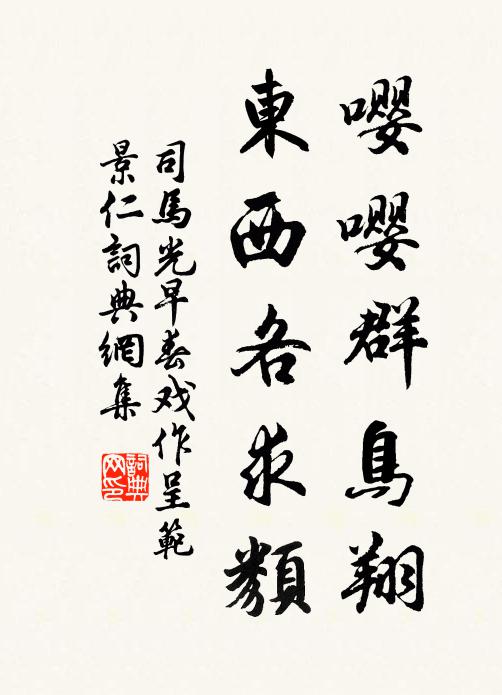 嚶嚶群鳥翔
東西各求類
司馬光早春戏作呈範
景仁詞典網集
詞典
网印